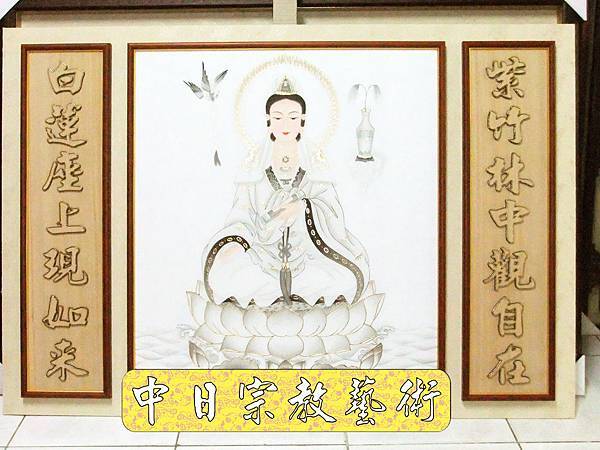 紫竹林中觀自在
白蓮座上現如来
中日宗教藝術